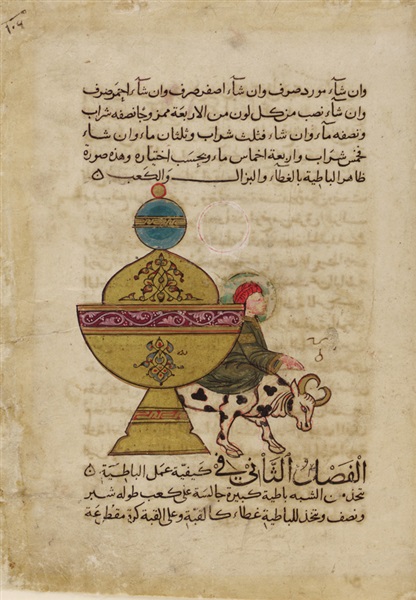 ١٠٦
وان شاء مورد صرف وان شاء اصفر صرف وان شاء احمر صرف
وان شاء نصب من كل لون من الاربعة ممزوجا نصفه شراب
ونصفه ماء وان شاء فثلث شراب وثلثان ماء وان شاء
فخمس شراب واربعة اخماس ماء وبحسب اختياره وهذه صورة
ظاهر الباطية بالغطاء والبزال والكعب
الفصل الثاني في كيفية عمل الباطية
تتخذ من الشبه باطية كبيرة جالسة على كعب طوله شبر
ونصف ويتخذ للباطية غطاء كالقبة وعلى القبة كرة مقطعة